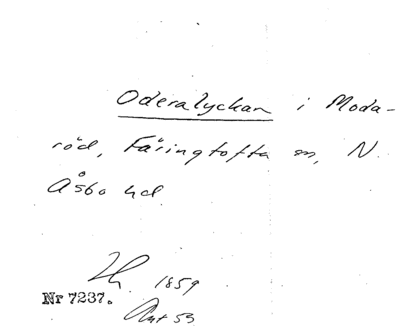 Oderalyckan i Moda-
röd, Färingtofta sn, N.
Åsbo hd.
1859
Nr 7237.